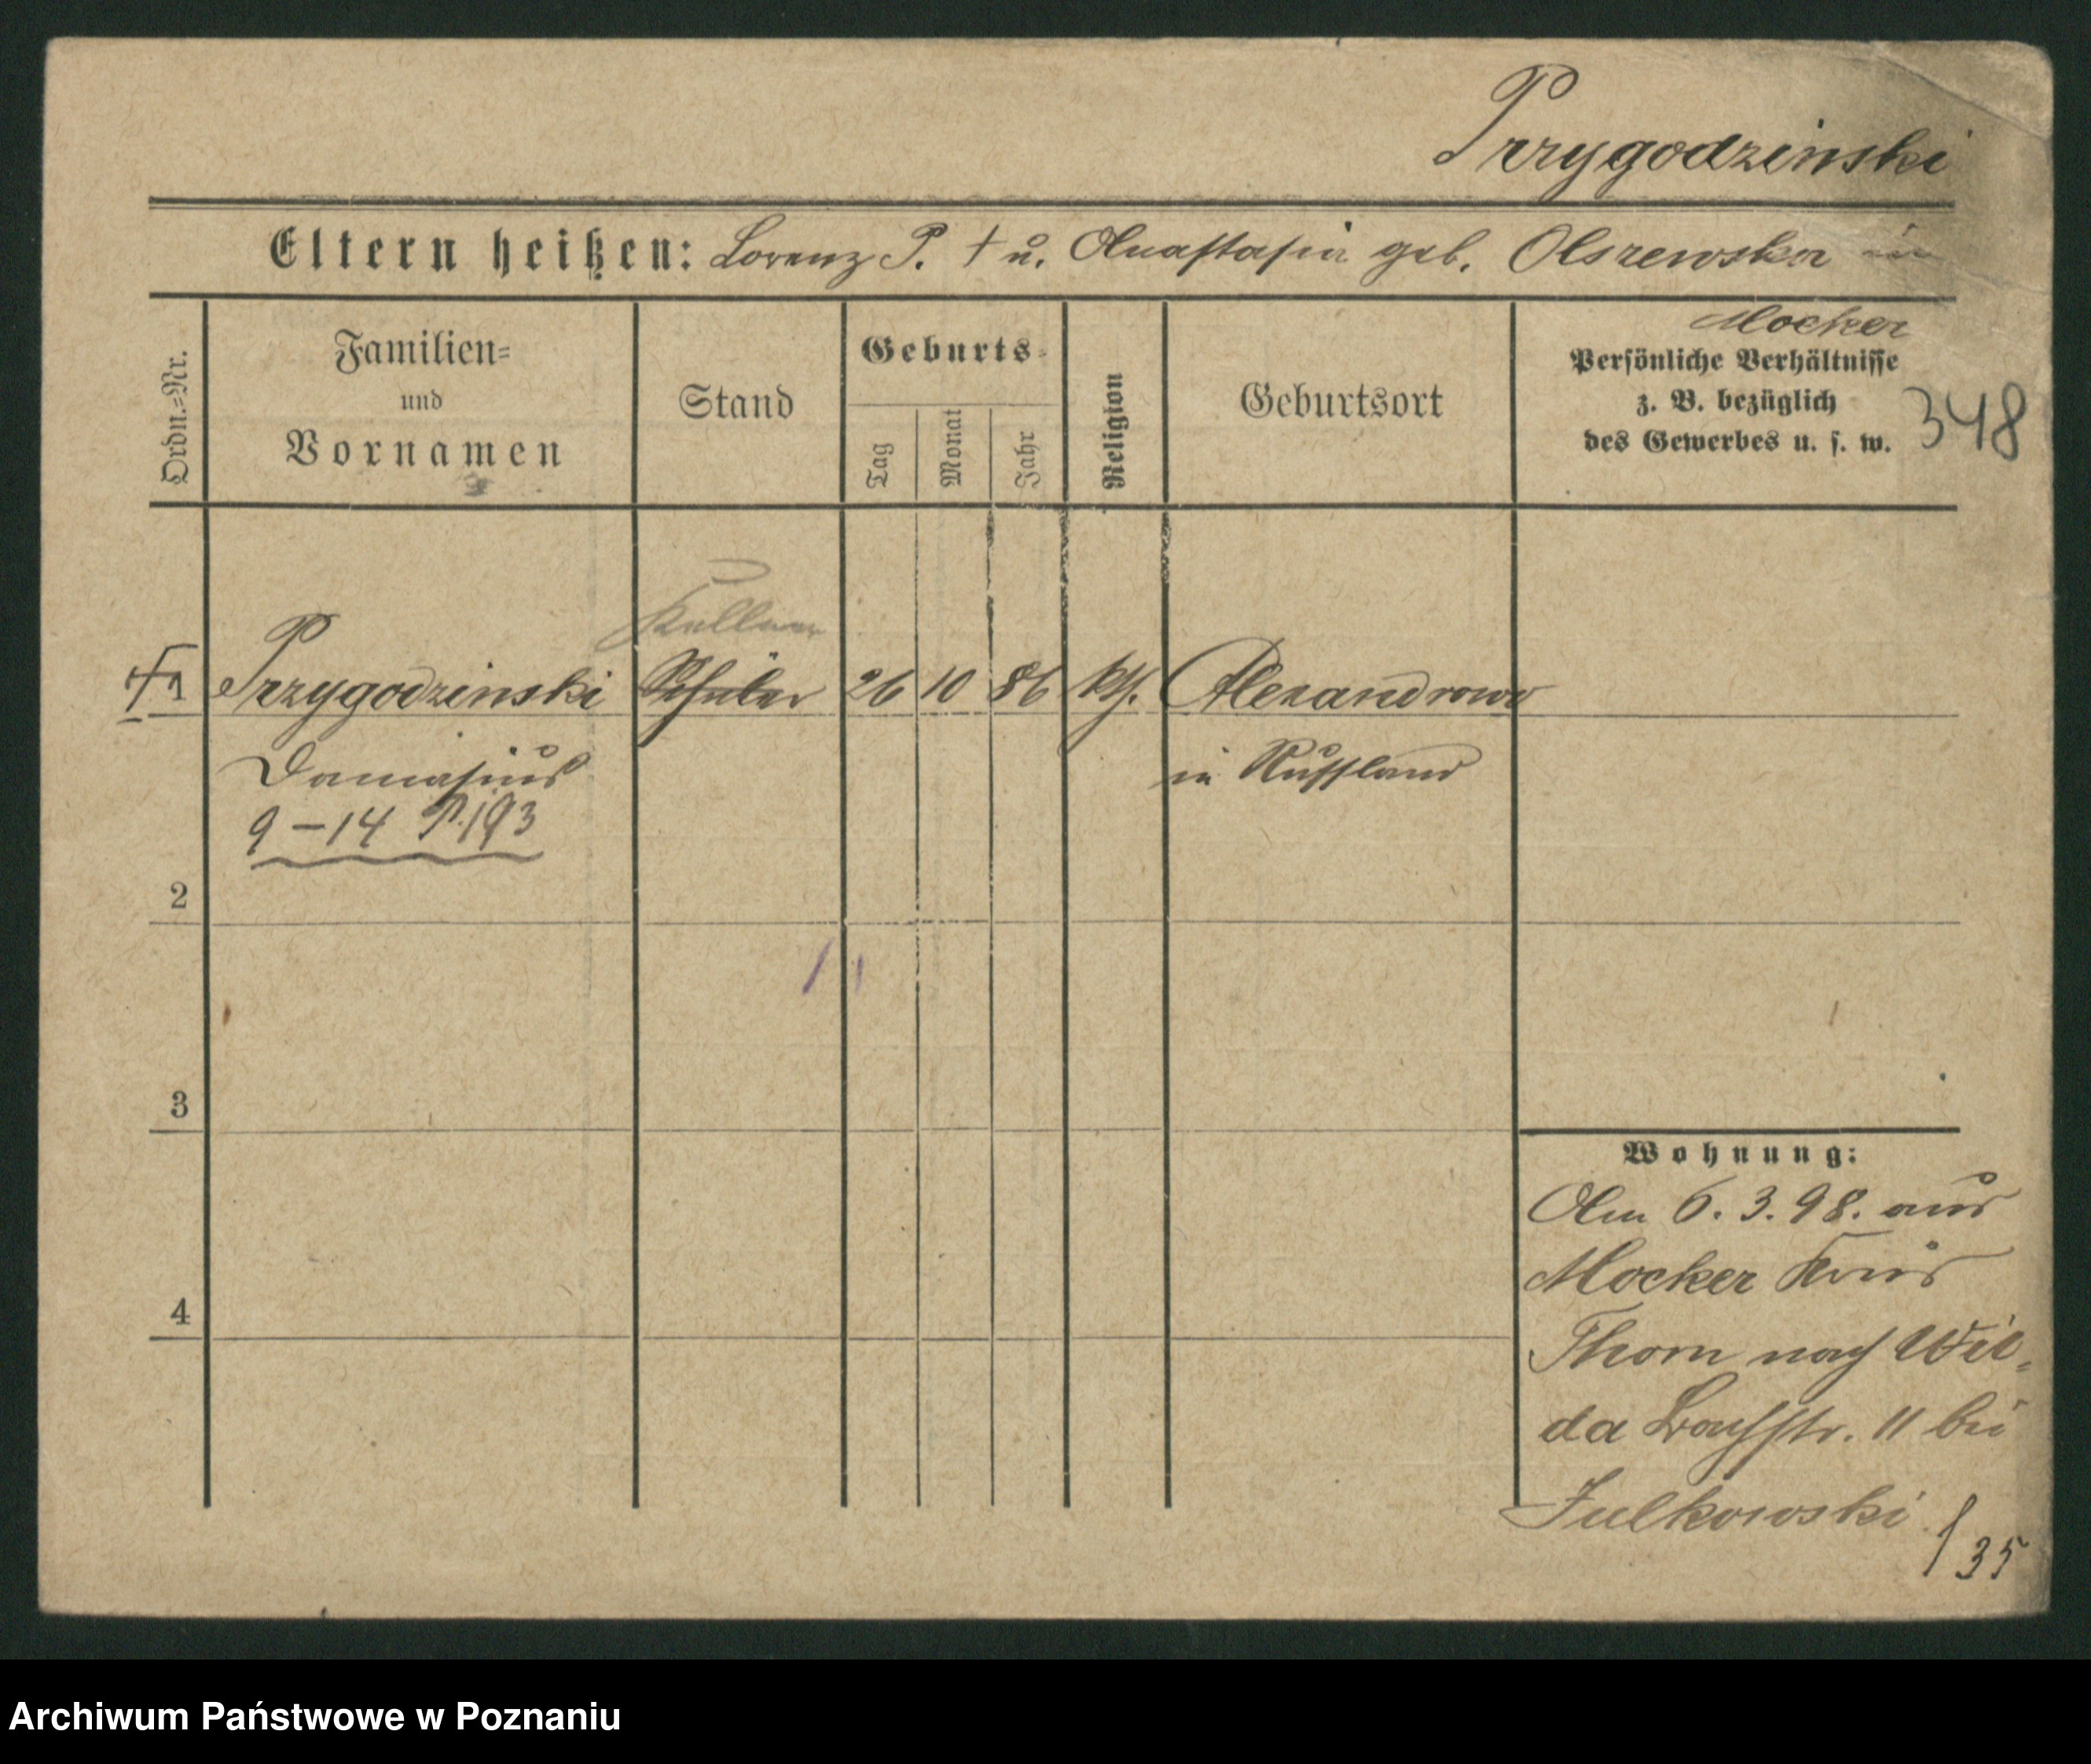 Przygodzinski
Eltern heißen: Lorenz P. † u. Anastasia geb. Olszewska in
Mocker
Ordn.=Nr.
Familien=
und
Vornamen
Stand
Geburts=
Tag
Monat
Jahr
Religion
Geburtsort
Persönliche Verhältnisse
z. B. bezüglich
des Gewerbes u. s. w.
348
Kellner
1 Przygodzinski Schüler 26 10 86 kth. Alexandrowo
Damasius in Russland
9-14 P. 193
2
3
4
Wohnung:
Am 6.3.98. aus
Mocker Kreis
Thorn nach Wil=
da Bachstr. 11 bei
Julkowski
35
Archiwum Państwowe w Poznaniu